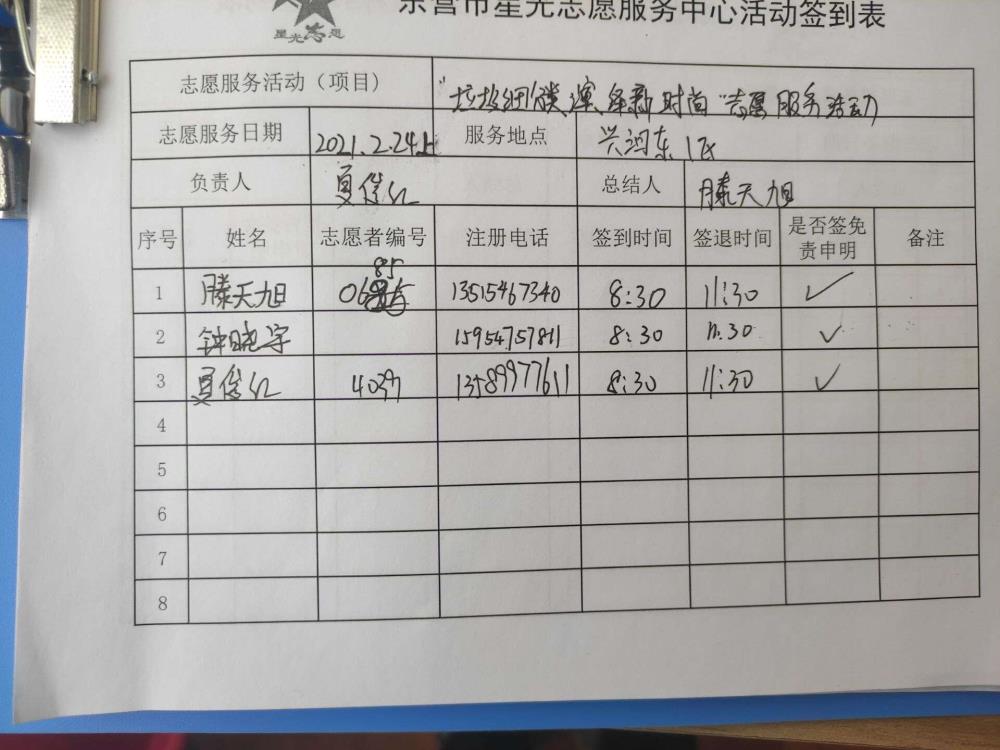 星光志愿
东营市星光志愿服务中心活动签到表
志愿服务活动（项目） “垃圾细分类 演绎新时尚”志愿服务活动
志愿服务日期 2021.2.24上 服务地点 兴润东1区
负责人 夏俊红 总结人 滕天旭
序号 姓名 志愿者编号 注册电话 签到时间 签退时间 是否签免责申明 备注
1 滕天旭 0685 13515467340 8:30 11:30 ✓
2 钟晓宇 15954757811 8:30 11:30 ✓
3 夏俊红 4039 13589977611 8:30 11:30 ✓
4
5
6
7
8